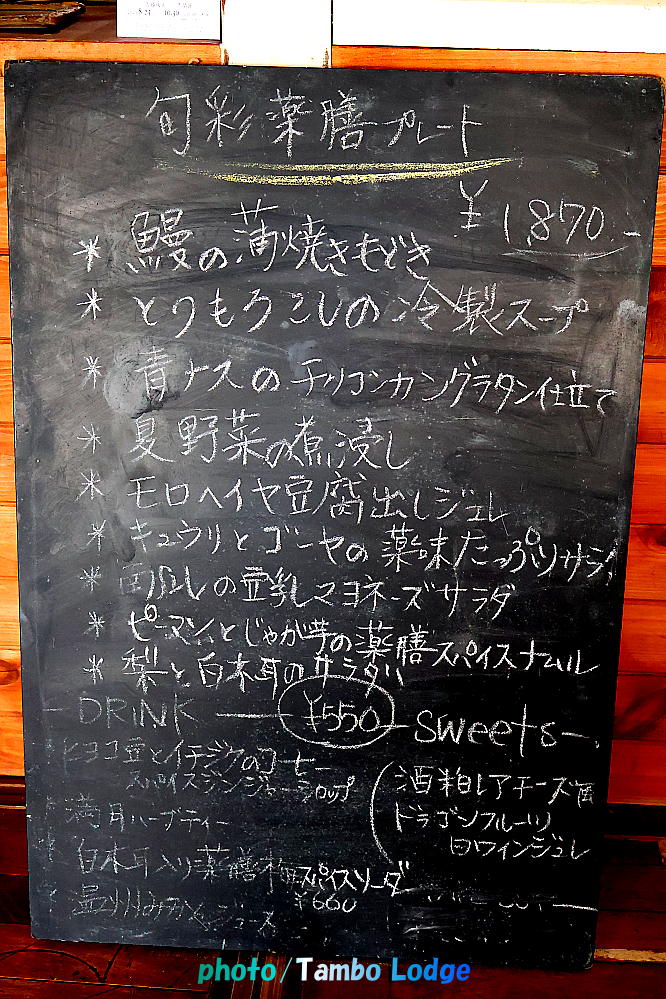 8/24 10:30
旬彩薬膳プレート
¥1,870.-
* 鰻の蒲焼きもどき
* とうもろこしの冷製スープ
* 青ナスのチリコンカングラタン仕立て
* 夏野菜の煮浸し
* モロヘイヤ豆腐出しジュレ
* キュウリとゴーヤの薬味たっぷりサラダ
* の豆乳マヨネーズサラダ
* ピーマンとじゃが芋の薬膳スパイスナムル
* 梨と白木耳のサラダ
DRINK — ¥550 — sweets —
ヒヨコ豆とイチジクのコーヒー
スパイスジンジャーシロップ
満月ハーブティー
白木耳入り薬膳梅スパイスソーダ
¥660
温州みかんジュース
酒粕レアチーズ
ドラゴンフルーツ
白ワインジュレ
photo / Tambo Lodge